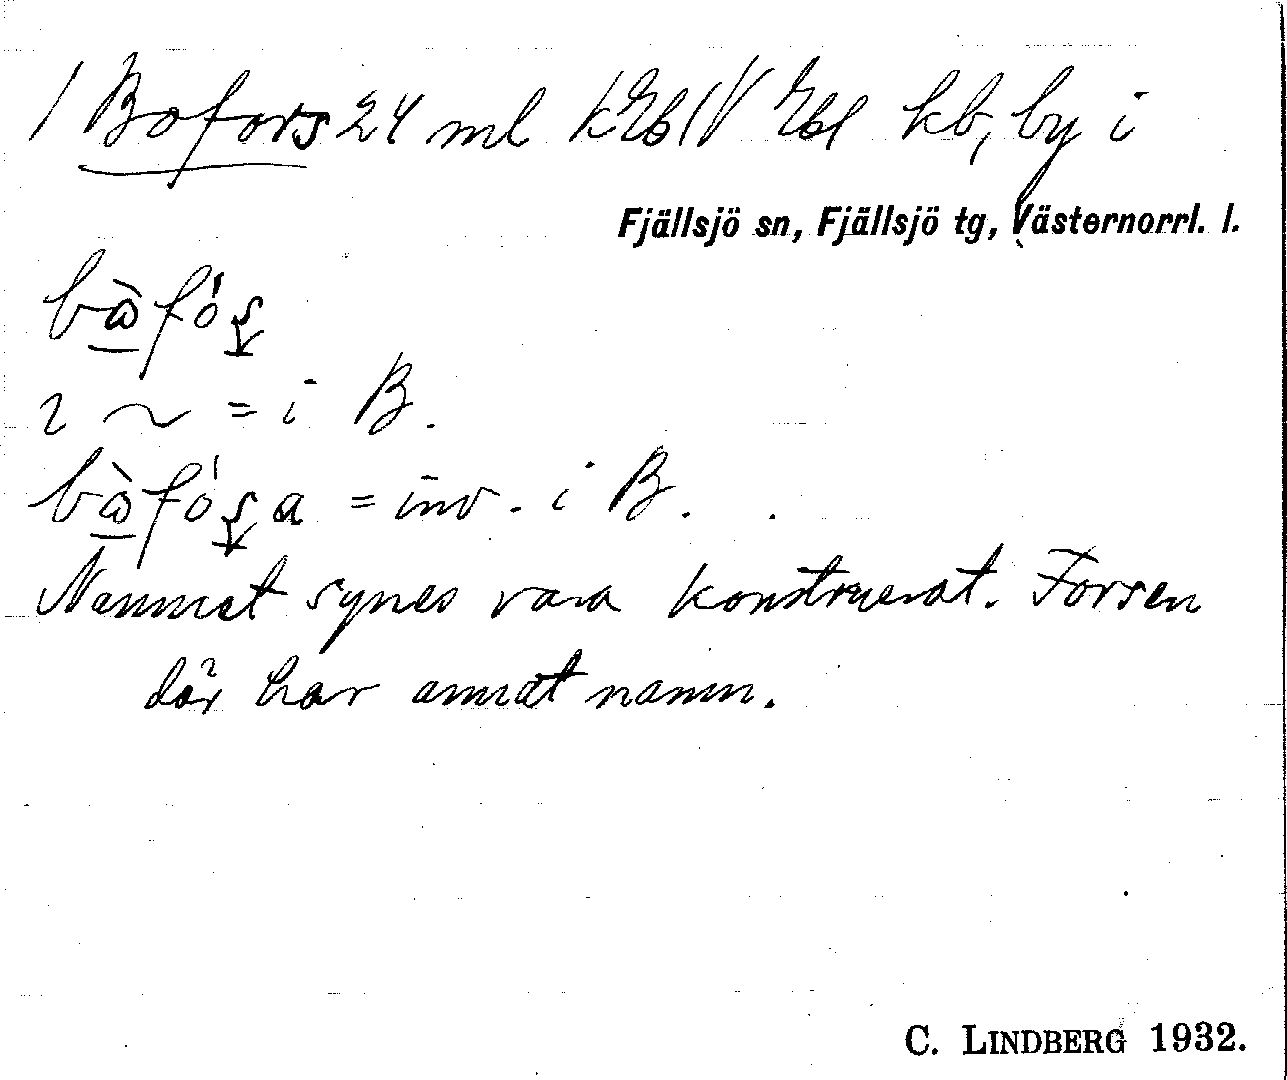 1 Bofors 24 ml kEblV Ebl kb, by i
Fjällsjö sn, Fjällsjö tg, Västernorrl. l.
ı ~ = i B.
= inv. i B.
Namnet synes vara konstruerat. Forsen
där har annat namn.
C. LINDBERG 1932.